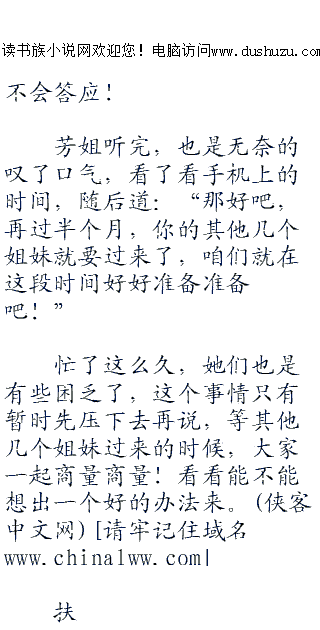 读书族小说网欢迎您！电脑访问www.dushuzu.com
不会答应！
芳姐听完，也是无奈的
叹了口气，看了看手机上的
时间，随后道：“那好吧，
再过半个月，你的其他几个
姐妹就要过来了，咱们就在
这段时间好好准备准备
吧！”
忙了这么久，她们也是
有些困乏了，这个事情只有
暂时先压下去再说，等其他
几个姐妹过来的时候，大家
一起商量商量！看看能不能
想出一个好的办法来。(侠客
中文网)[请牢记住域名
www.china1ww.com|
扶